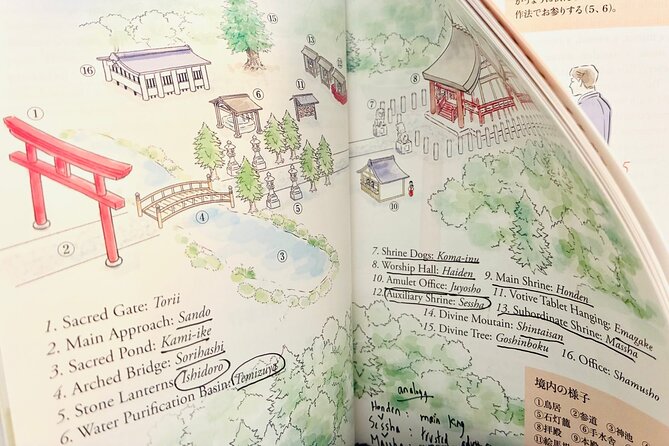 ⑮
⑬
⑯
⑥
⑪
①
⑦
⑧
⑤
⑩
④
②
③
1. Sacred Gate: Torii
2. Main Approach: Sando
3. Sacred Pond: Kami-ike
4. Arched Bridge: Sorihashi
5. Stone Lanterns: Ishidoro
6. Water Purification Basin: Temizuya
7. Shrine Dogs: Koma-inu
8. Worship Hall: Haiden
9. Main Shrine: Honden
10. Amulet Office: Juyosho
11. Votive Tablet Hanging: Emagake
12. Auxiliary Shrine: Sessha
13. Subordinate Shrine: Massha
14. Divine Moutain: Shintaisan
15. Divine Tree: Goshinboku
16. Office: Shamusho
analogy
Honden: main King
Sessha: trusted
作法でお参りする(5、6)。
5
境内の様子
①鳥居 ②参道 ③神池
⑤石灯籠 ⑥手水舎
⑧拝殿